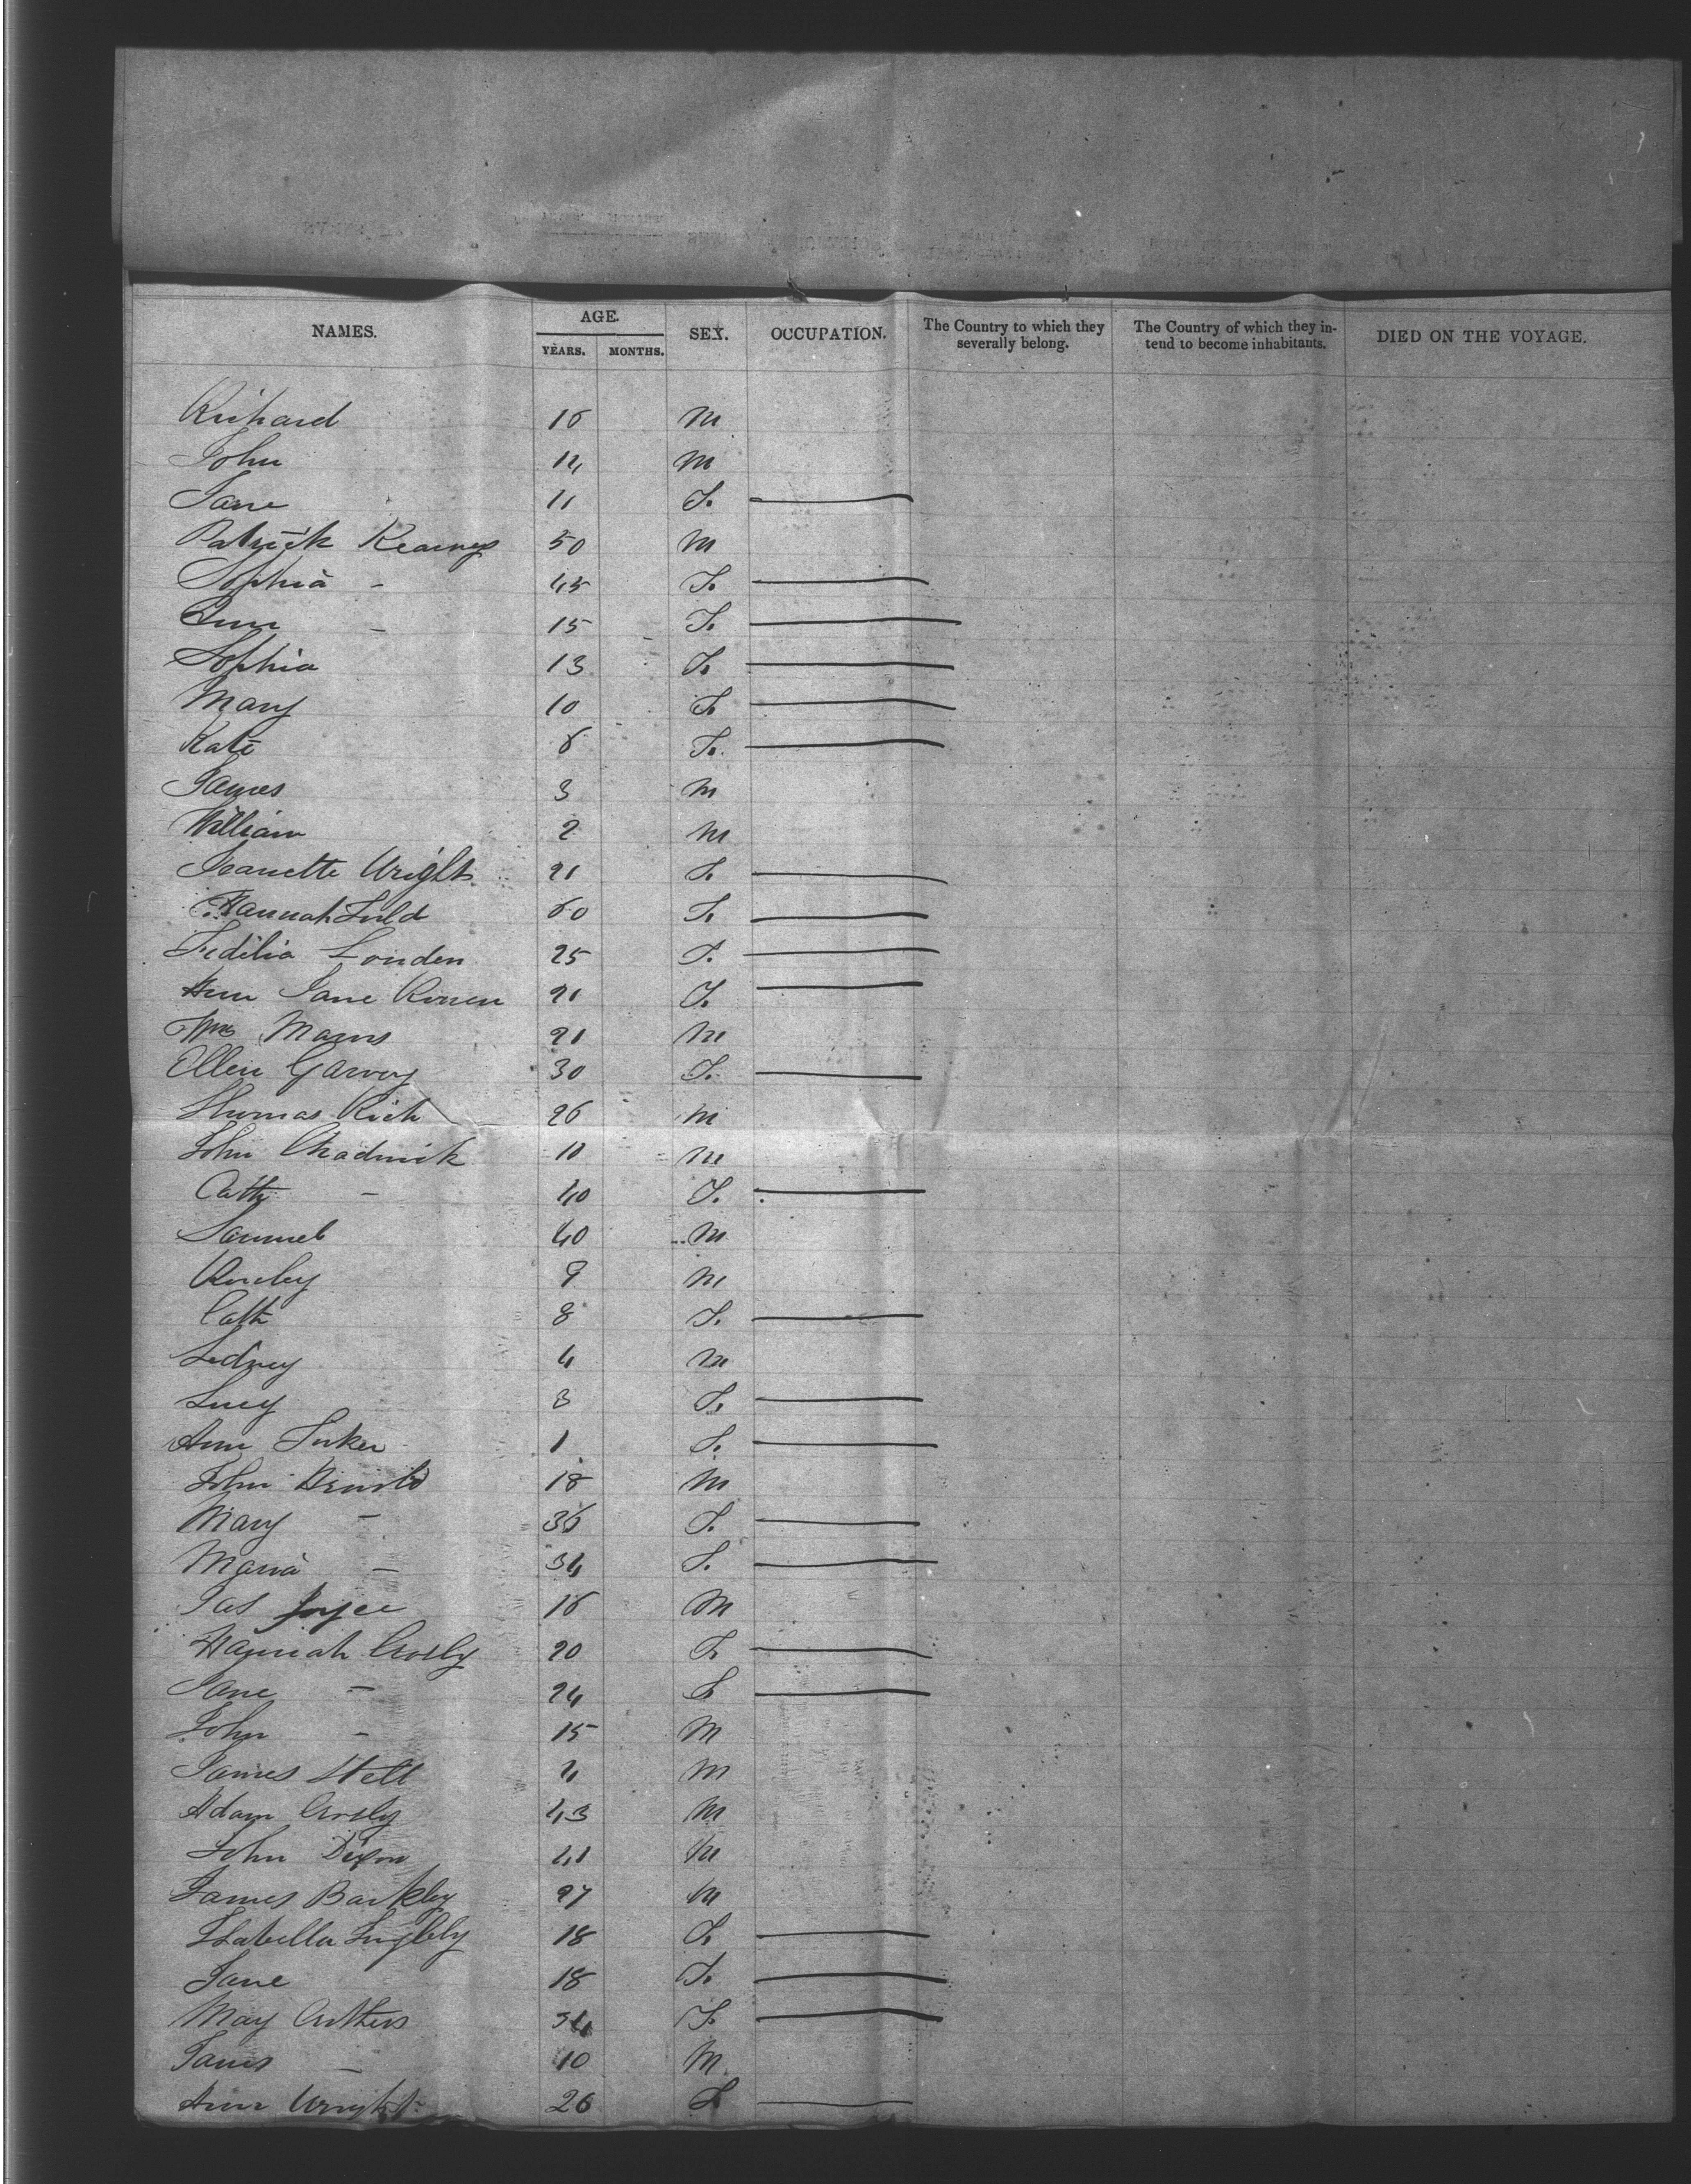 NAMES. AGE. SEX. OCCUPATION. The Country to which they severally belong. The Country of which they intend to become inhabitants. DIED ON THE VOYAGE.
YEARS. MONTHS.
Richard 16 M
John 14 M
Jane 11 F.
Patrick Kearney 50 M
Sophia - 45 F.
Ann - 15 F.
Sophia 13 F.
Mary 10 F.
Kate 6 F.
James 3 M
William 2 M
Jeanette Wright 21 F.
Hannah 60 F.
Fidelia Londen 25 F.
Ann Jane 21 F.
Wm 21 M
Ellen Garvey 30 F.
Thomas Rich 26 M
John Chadwick M
Cath - 40 F.
Samuel 40 M
9 M
Cath 8 F.
Sidney 4 M
Lucy 3 F.
Ann 1 F.
John Arnold 18 M
Mary - 36 F.
Maria - 34 F.
Jas Joyce 16 M
Hannah Crosby 20 F.
Jane - 24 F.
John - 15 M
James 4 M
Adam Crosby 43 M
John Dixon 41 M
James Barkley 27 M
Isabella 18 F.
Jane 18 F.
May 34 F.
James - 10 M
Ann Wright 26 F